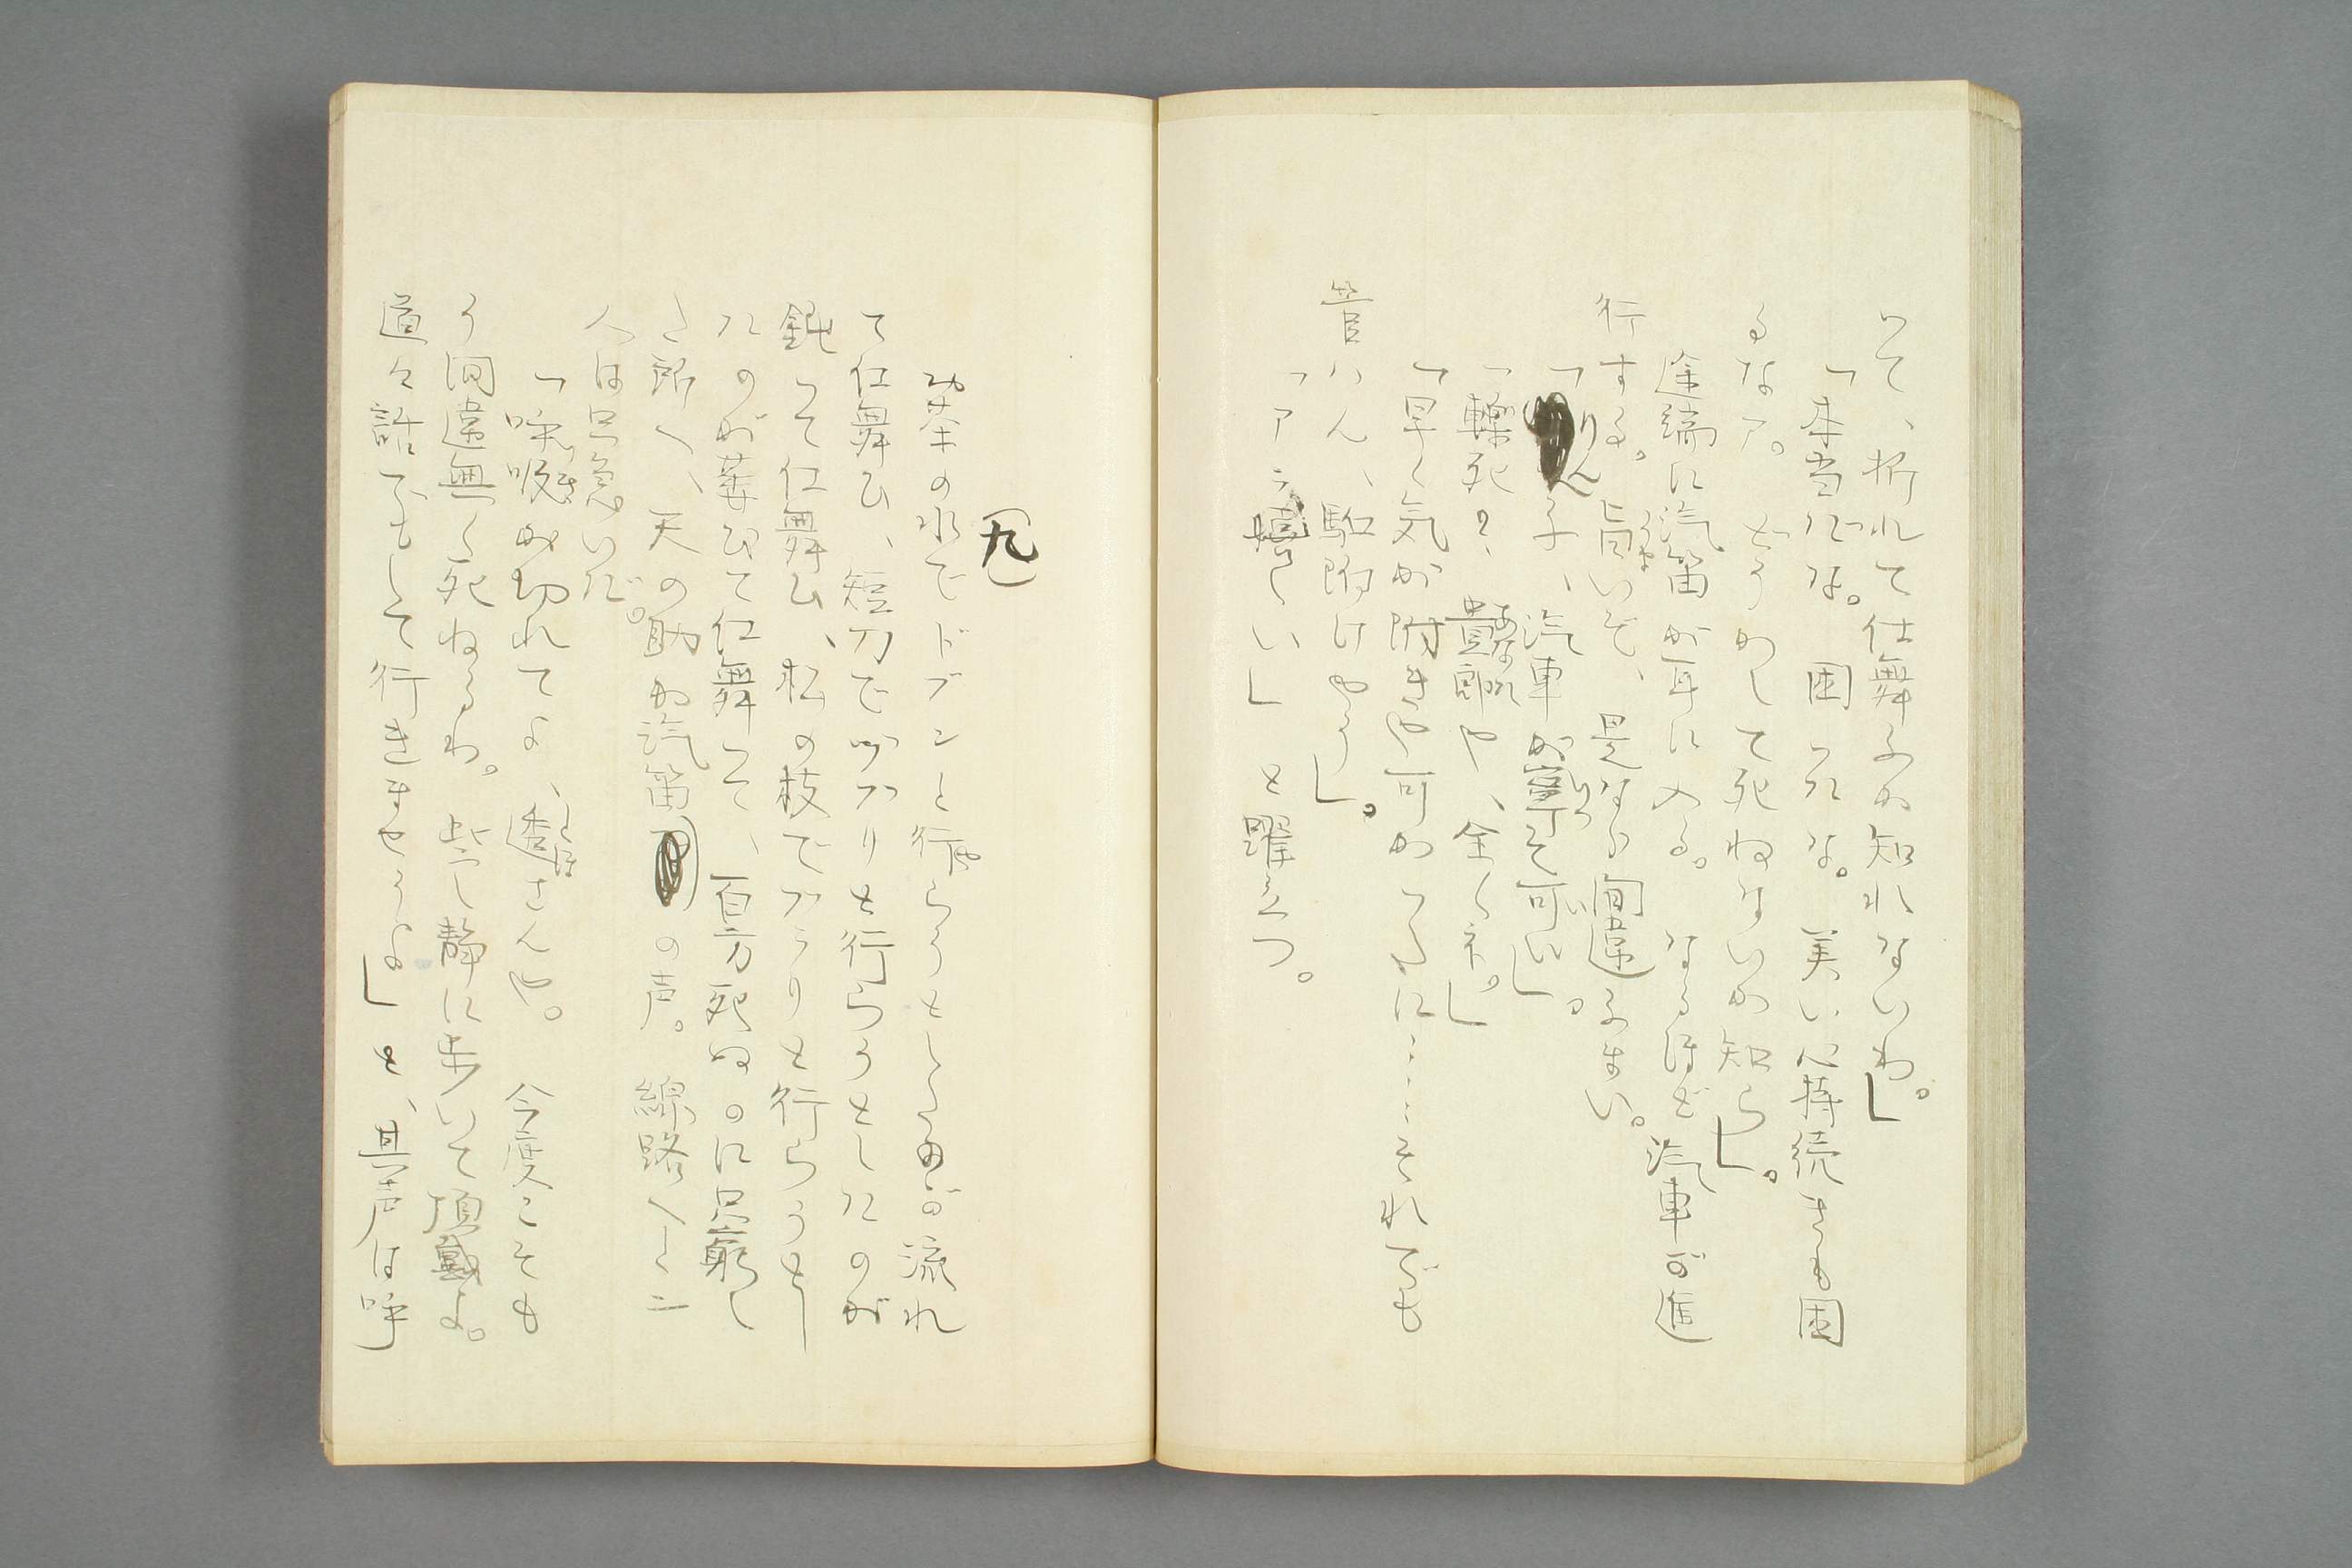 いて、折れて仕舞ふか知れないわ。」
「本当だな。困つたな。美い心持続きも困
るなア。どうかして死ねまいか知ら」。
途端に汽笛が耳に入る。なるほど汽車が進
行する。旨いぞ、是なら間違ふまい。
「りん子、汽車が轟して可い」。
「轢死？、貴郎や、全くネ。」
「早く気が附きや可かつたに……それでも
管はん、駈附けやう」。
「アラ嬉しい」と躍立つ。
（九）
お茶の水でドブンと行らうとしたのが流れ
て仕舞ひ、短刀でグカリと行らうとしたのが
鈍つて仕舞ひ、松の枝でブラリと行らうとし
たのが萎びて仕舞つて、百方死ぬのに只窮し
た所へ、天の助か汽笛の声。線路へと二
人は只急いだ。
「呼吸が切れてよ、透さんや。今度こそも
う間違無く死ねるわ。些し静に歩いて頂戴よ。
道々話でもして行きませうよ」と、其声は呼